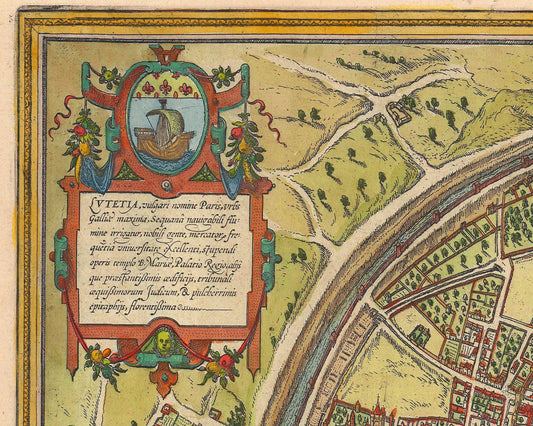 LVTETIA, vulgari nomine Paris, vrbs
Galliæ maxima, Sequana navigabili flu-
mine irrigatur, nobili gente, mercator, fre-
quētia vniuersitate excellenti, stupendi
operis templo B. Mariæ, Palatio Regio, alijs
que præstantissimis ædificijs, tribunali
æquissimorum Iudicum, & pulcherrimis
epitaphijs, florentissima